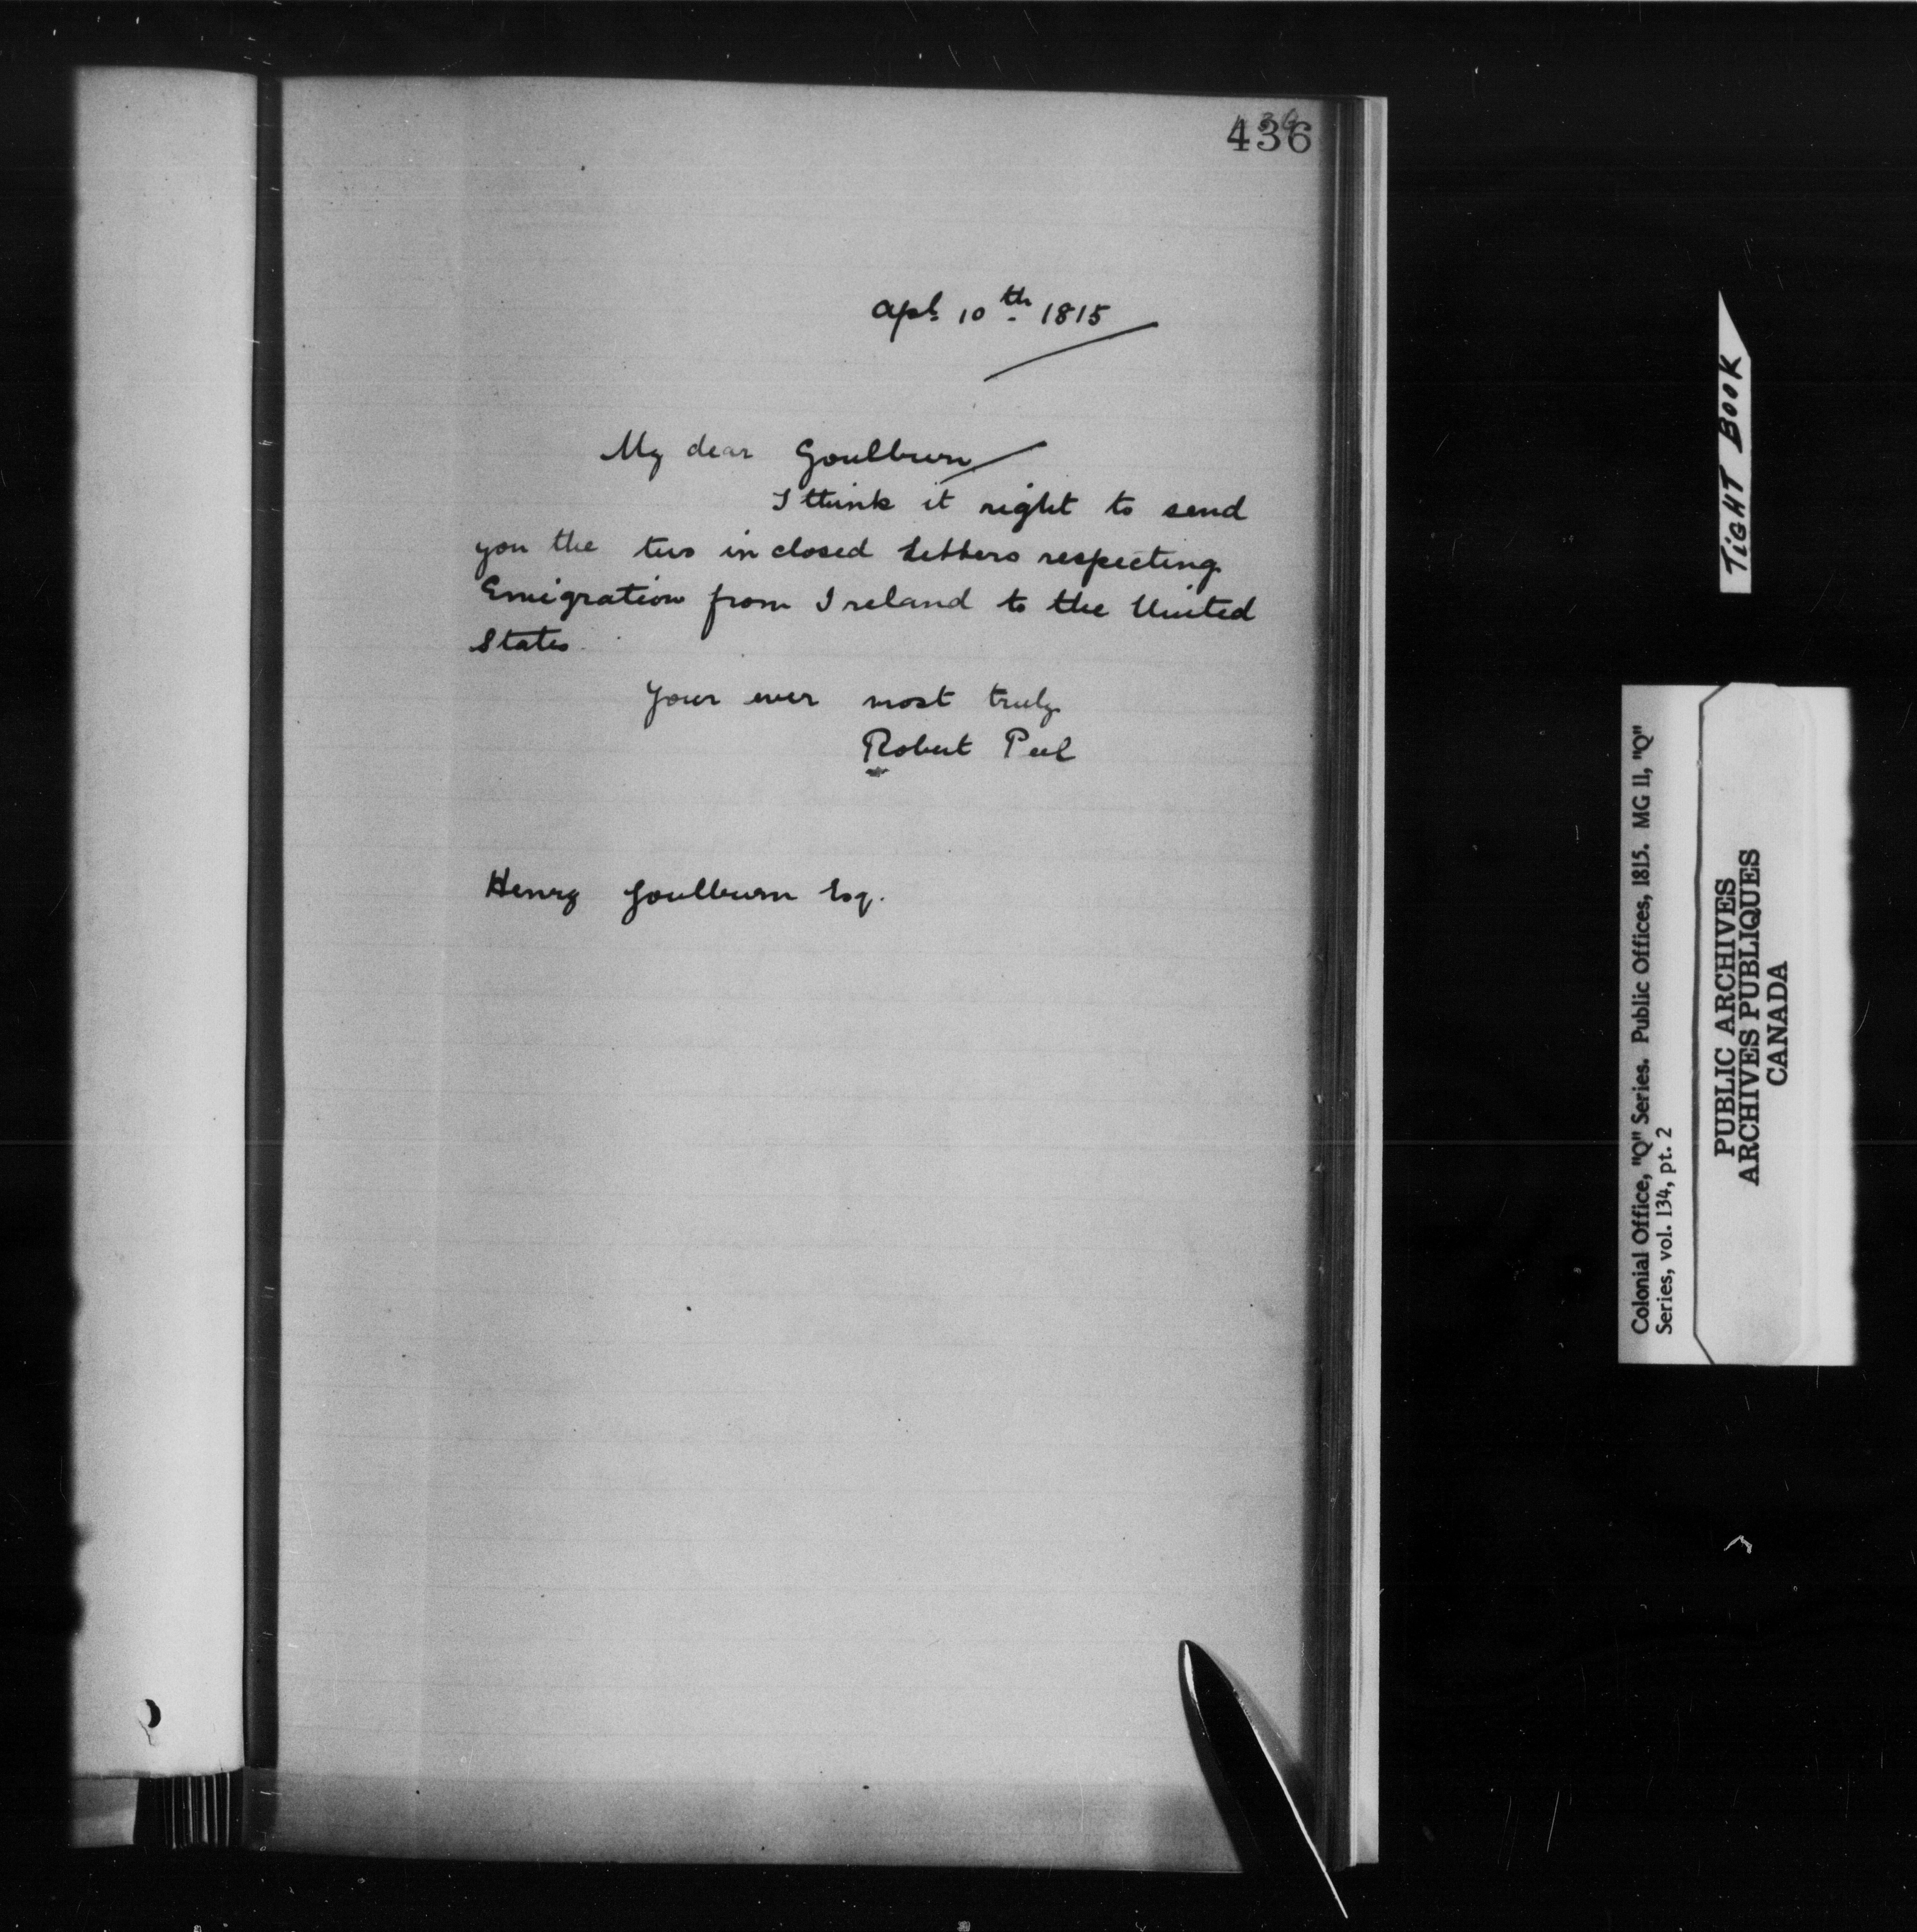 436
Apl. 10th 1815
My dear Goulburn
I think it right to send
you the two inclosed Letters respecting
Emigration from Ireland to the United
States.
Your ever most truly
Robert Peel
Henry Goulburn Esq.
TIGHT BOOK
Colonial Office, "Q" Series. Public Offices, 1815. MG 11, "Q"
Series, vol. 134, pt. 2
PUBLIC ARCHIVES
ARCHIVES PUBLIQUES
CANADA